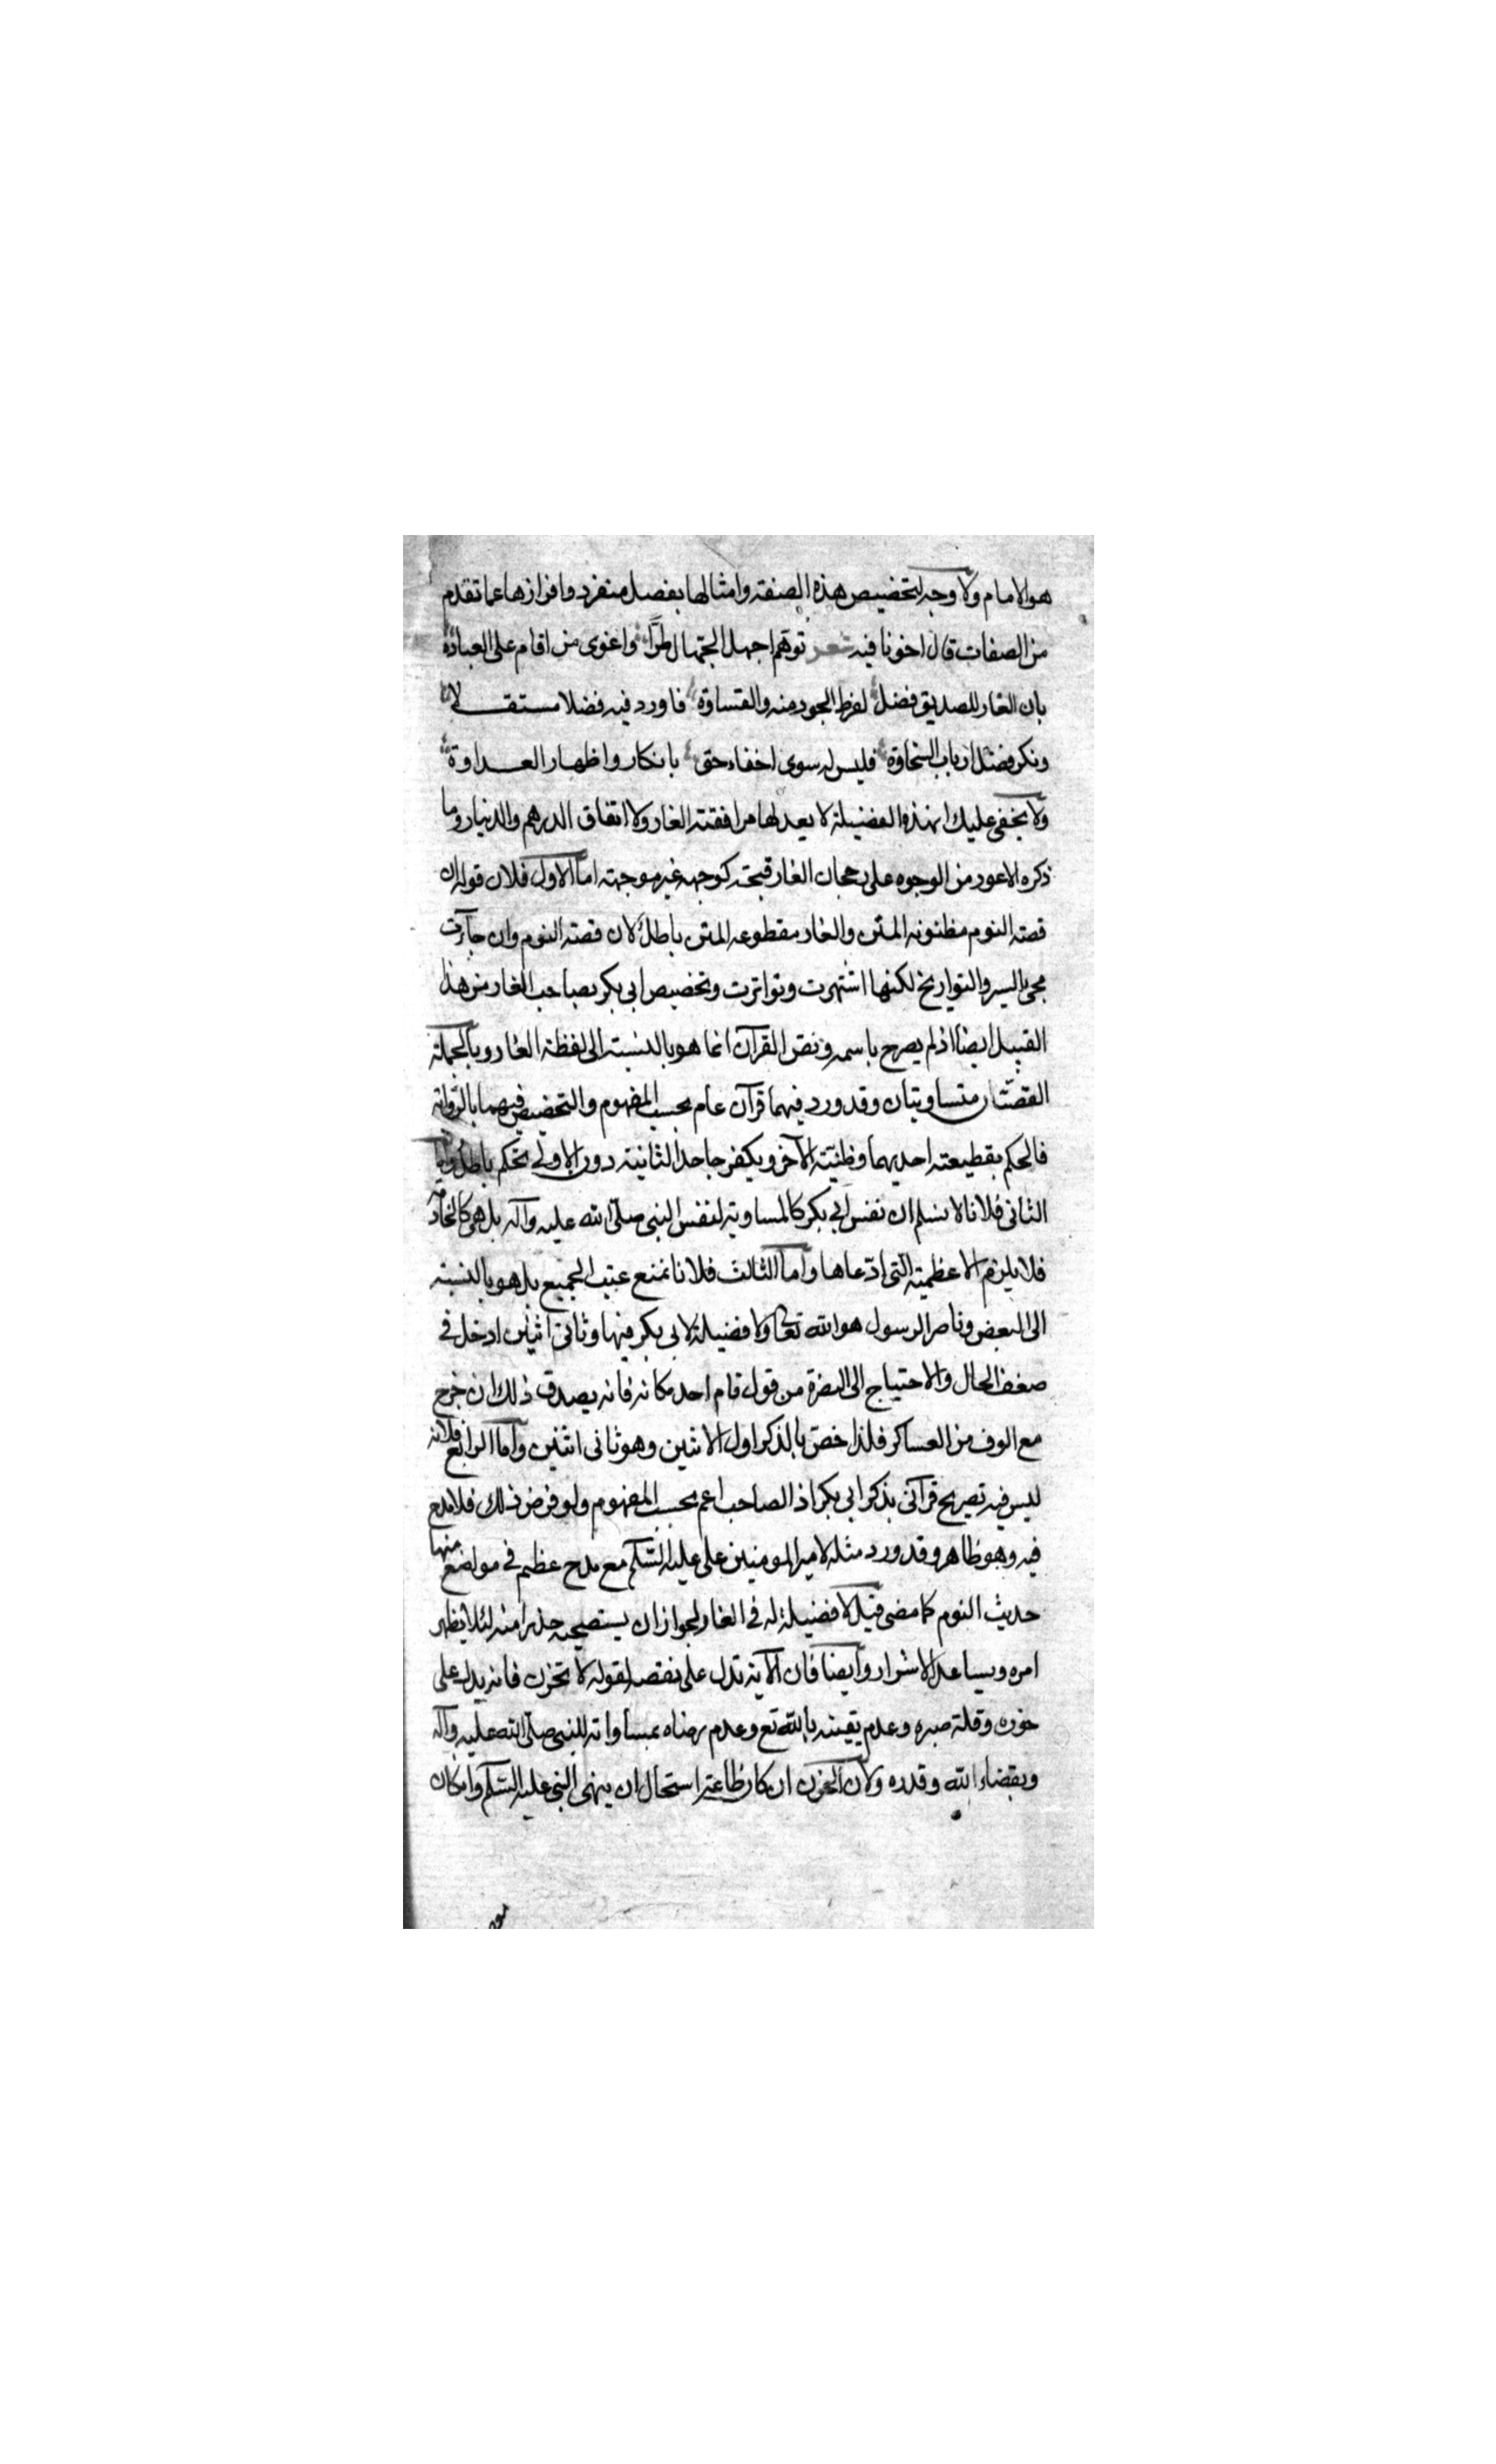 هو الامام ولا وجه لتخصيص هذه الصفة وامثالها بفصل منفرد وافرازها عما تقدم
من الصفات قال اخونا فيه شعر توهم اجهل الجهال طرّا واغوى من اقام على العباده
بان الغار للصديق فضل لفرط الجود منه والقساوة فاورد فيه فضلا مستقلا
ونكر فضل ارباب السخاوة فليس له سوى اخفاء حق بانكار واظهار العداوة
ولا يخفى عليك ان هذه الفضيلة لا يعدلها مرافقة الغار ولا انفاق الدرهم والدينار وما
ذكره الاعور من الوجوه على رجحان الغار قبيحة كوجهه غير موجهة اما الاول فلان قوله ان
قصة النوم مظنونه المتن والغار مقطوعه المتن باطل لان قصة النوم وان جاءت
مجئ السير والتواريخ لكنها اشتهرت وتواترت وتخصيص ابي بكر بصاحب الغار من هذا
القبيل ايضا اذ لم يصرح باسمه ونص القرآن انما هو بالنسبة الى لفظة الغار وبالجملة
القصّتان متساويتان وقد ورد فيهما قرآن عام بحسب المفهوم والتخصيص فيهما بالرواية
فالحكم بقطيعة احديهما وظنيّة الآخر ويكفر جاحد الثانية دون الاولى تحكم باطل واما
الثاني فلانا لا نسلم ان نفس ابي بكر كالمساوية لنفس النبي صلى الله عليه وآله بل هي كالخادمة
فلا يلزم الاعظمية التي ادّعاها واما الثالث فلانا نمنع عتب الجميع بل هو بالنسبة
الى البعض وناصر الرسول هو الله تعالى ولا فضيلة لابي بكر فيها وثاني اثنين ادخل في
ضعف الحال والاحتياج الى النصرة من قول قام احد مكانه فانه يصدق ذلك ان خرج
مع الوف من العساكر فلذا خصّ بالذكر اول الاثنين وهو ثاني اثنين واما الرابع فلانه
ليس فيه تصريح قرآني بذكر ابي بكر اذ الصاحب اعم بحسب المفهوم ولو فرض ذلك فلا مدح
فيه وهو ظاهر وقد ورد مثله لامير المومنين علي عليه السلام مع مدح عظيم في مواضع منها
حديث النوم كما مضى قيل لا فضيلة له في الغار لجواز ان يستصحبه حذرا منه لئلا يظهر
امره ويساعد الاشرار وايضا فان الآية تدل على نقصه لقوله لا تحزن فانه يدل على
خوره وقلة صبره وعدم يقينه بالله تع وعدم رضاه بمساواته للنبي صلى الله عليه وآله
وبقضاء الله وقدره ولان الحزن ان كان طاعة استحال ان ينهى النبي عليه السلم وان كان